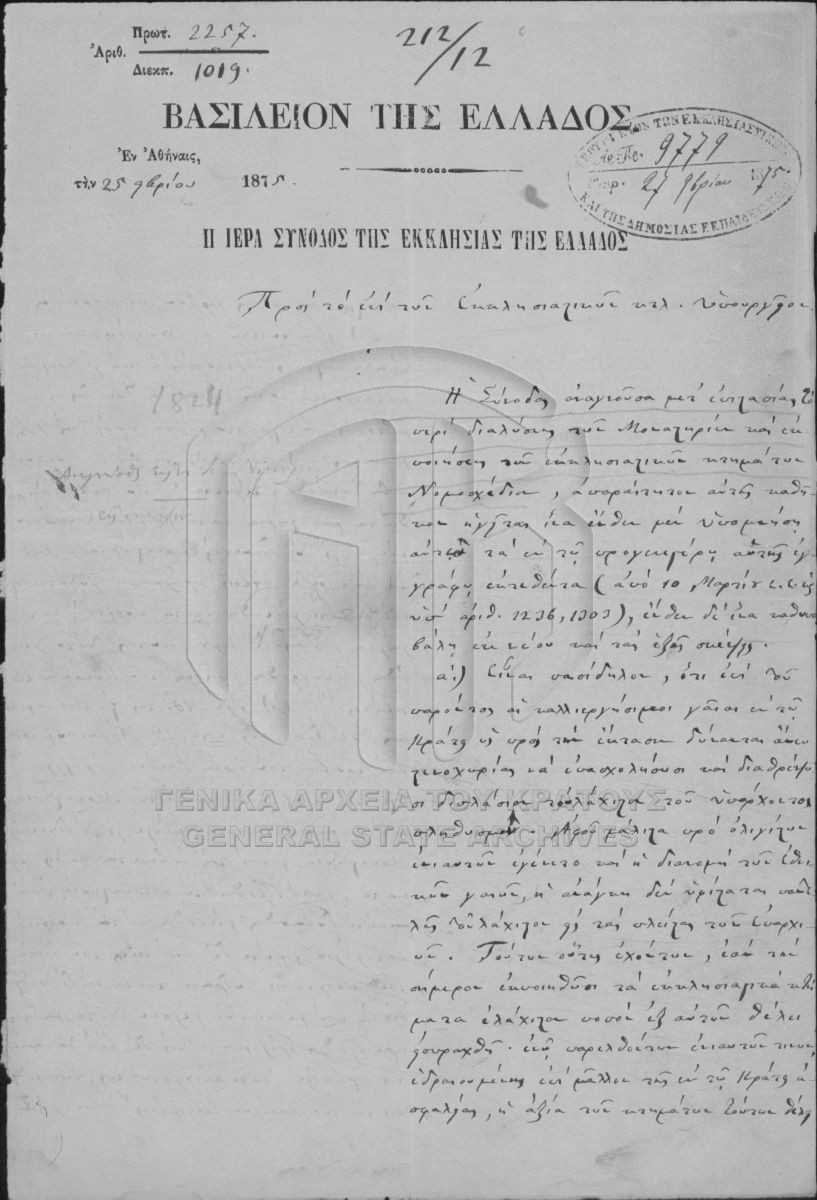 Πρωτ. 2257.
Ἀριθ.
Διεκπ. 1019.
212/12
ΒΑΣΙΛΕΙΟΝ ΤΗΣ ΕΛΛΑΔΟΣ
Ἐν Ἀθήναις,
τὴν 25 9βρίου 1875.
ΥΠΟΥΡΓΕΙΟΝ ΤΩΝ ΕΚΚΛΗΣΙΑΣΤΙΚΩΝ
Ἀρ. Πρ. 9779
27 9βρίου 1875
ΚΑΙ ΤΗΣ ΔΗΜΟΣΙΑΣ ΕΚΠΑΙΔΕΥΣΕΩΣ
Η ΙΕΡΑ ΣΥΝΟΔΟΣ ΤΗΣ ΕΚΚΛΗΣΙΑΣ ΤΗΣ ΕΛΛΑΔΟΣ
Πρὸς τὸ ἐπὶ τῶν Ἐκκλησιαστικῶν κτλ. Ὑπουργεῖον.
1824
Ἡ Σύνοδος ἀναγνοῦσα μετ' ἐπιστασίας τὸ
περὶ διαλύσεως τῶν Μοναστηρίων καὶ ἐκ-
ποιήσεως τῶν ἐκκλησιαστικῶν κτημάτων
Νομοσχέδιον, ἀπαραίτητον αὐτῆς καθῆ-
κον ἡγεῖται ἵνα ἔνθεν μὲν ὑπομνήσῃ
αὐτῷ τὰ ἐν τῷ προγενεστέρῳ αὐτῆς ἐγ-
γράφῳ ἐκτεθέντα (ἀπὸ 10 Μαρτίου
ὑπ' ἀριθ. 1236, 1303), ἔνθεν δὲ ἵνα καθυπο-
βάλῃ ἐκ νέου καὶ τὰς ἑξῆς σκέψεις.
α') Εἶναι πασίδηλον, ὅτι ἐπὶ τοῦ
παρόντος αἱ καλλιεργήσιμοι γαῖαι ἐν τῷ
Κράτει ὡς πρὸς τὴν ἔκτασιν δύνανται ἄνευ
στενοχωρίας νὰ ἐπασχολήσωσι καὶ διαθρέψω-
σι διπλάσιον τοὐλάχιστον τοῦ ὑπάρχοντος
πληθυσμοῦ. Ἀφοῦ μάλιστα πρὸ ὀλιγίστων
ἐνιαυτῶν ἐγένετο καὶ ἡ διανομὴ τῶν ἐθνι-
κῶν γαιῶν, ἡ ἀνάγκη δὲν ὑφίσταται παντε-
λῶς τοὐλάχιστον εἰς τὰς πλείστας τῶν Ἐπαρχι-
ῶν. Τούτων οὕτως ἐχόντων, ἐὰν τὴν
σήμερον ἐκποιηθῶσι τὰ ἐκκλησιαστικὰ κτή-
ματα ἐλάχιστον ποσὸν ἐξ αὐτῶν θέλει
εἰσπραχθῆ· ἐνῷ παρελθόντων ἐνιαυτῶν τινων,
ἑδραιουμένης ἐπὶ μᾶλλον τῆς ἐν τῷ Κράτει ἀ-
σφαλείας, ἡ ἀξία τῶν κτημάτων τούτων θέλει
ΓΕΝΙΚΑ ΑΡΧΕΙΑ ΤΟΥ ΚΡΑΤΟΥΣ
GENERAL STATE ARCHIVES